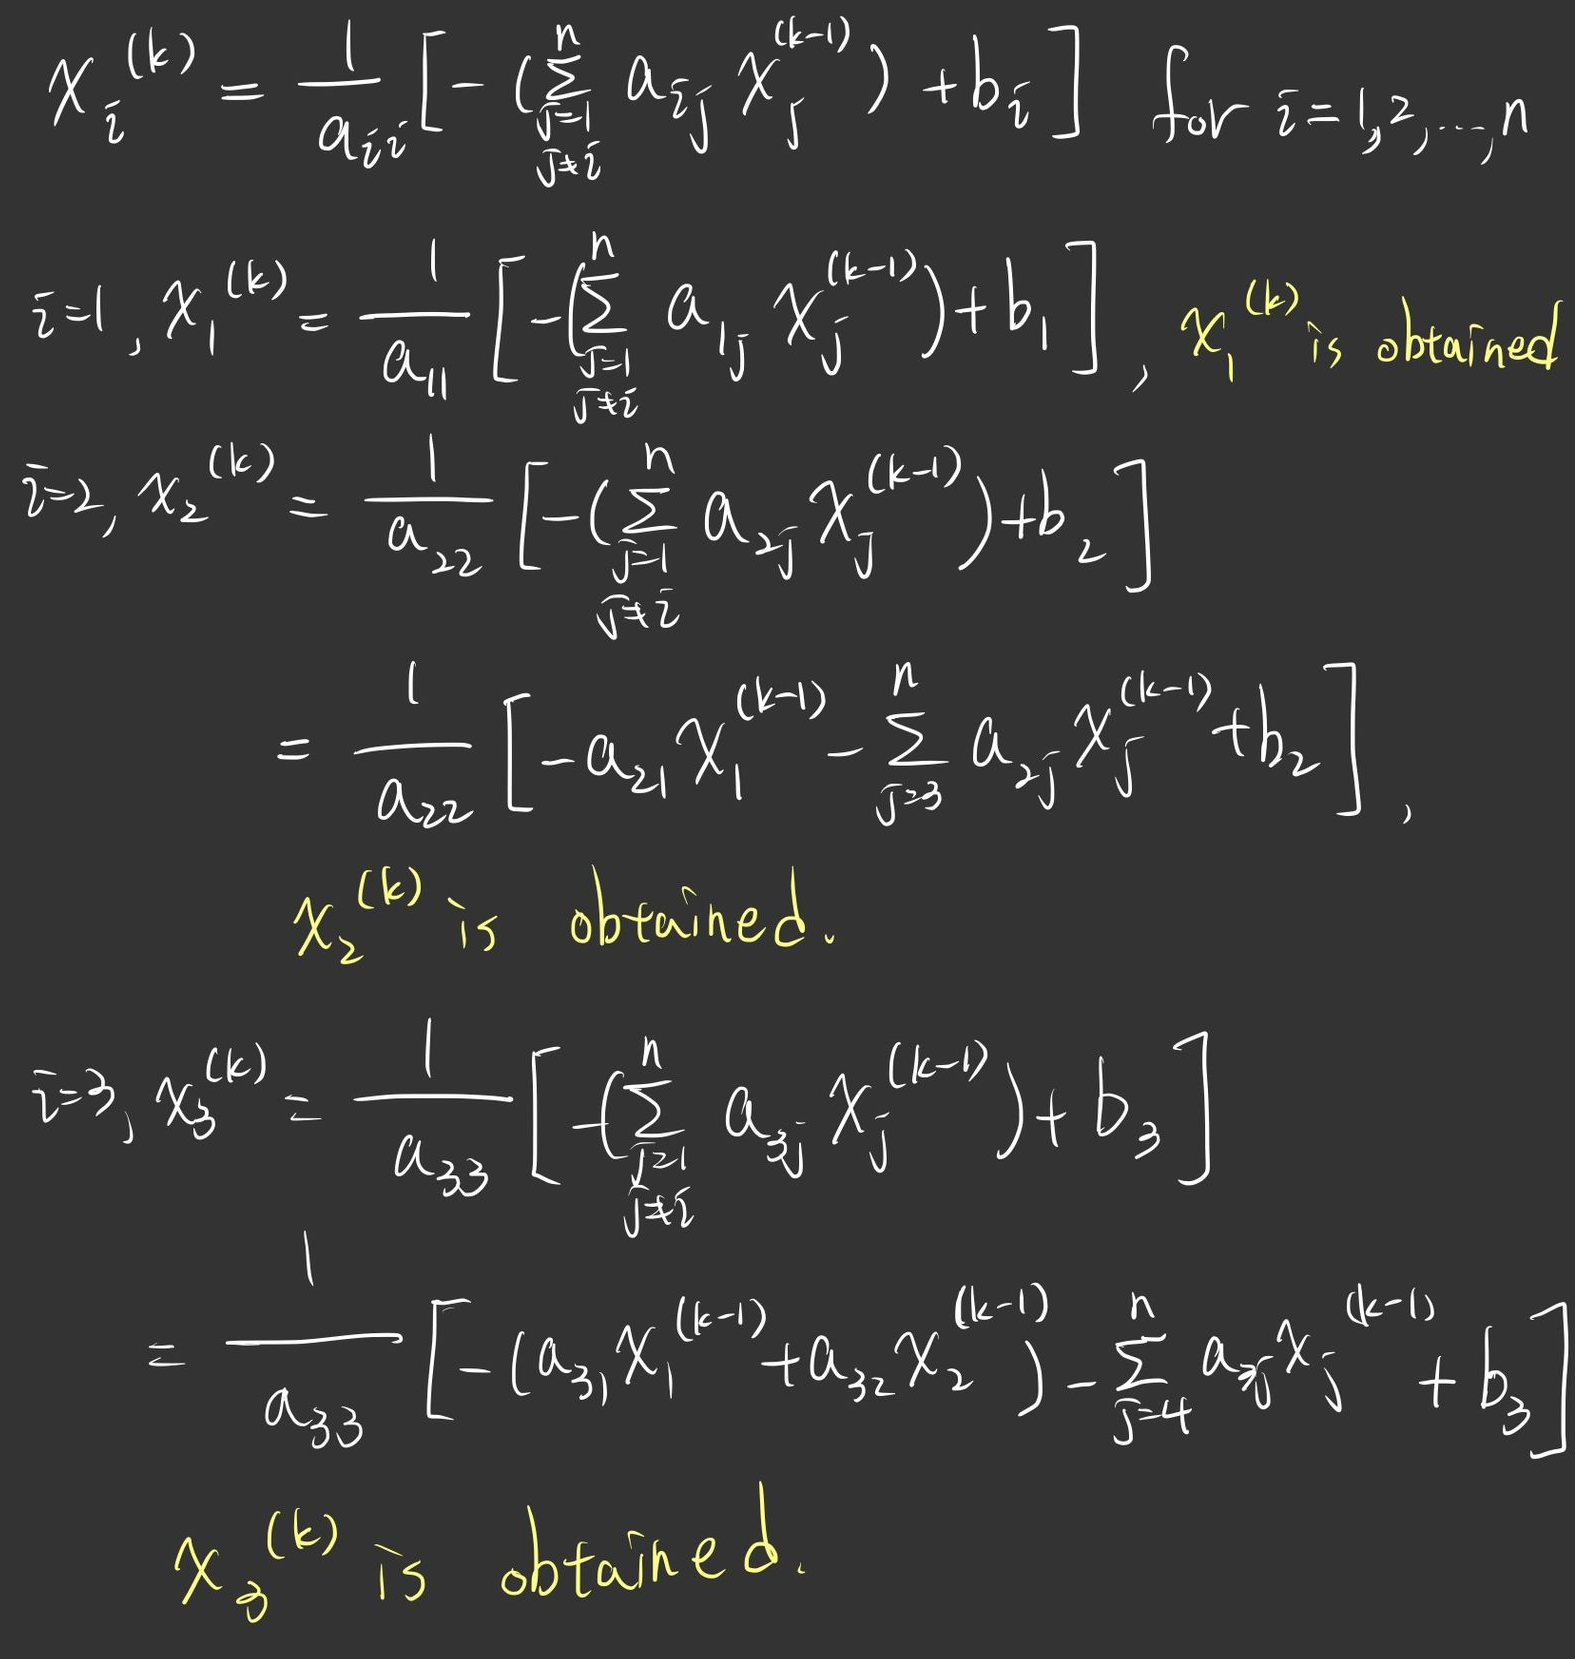 x_i^(k) = 1/a_ii [ - ( Σ_{j=1, j≠i}^{n} a_ij x_j^(k-1) ) + b_i ] for i=1,2,...,n
i=1, x_1^(k) = 1/a_11 [ - ( Σ_{j=1, j≠i}^{n} a_1j x_j^(k-1) ) + b_1 ], x_1^(k) is obtained
i=2, x_2^(k) = 1/a_22 [ - ( Σ_{j=1, j≠i}^{n} a_2j x_j^(k-1) ) + b_2 ]
= 1/a_22 [ - a_21 x_1^(k-1) - Σ_{j=3}^{n} a_2j x_j^(k-1) + b_2 ],
x_2^(k) is obtained.
i=3, x_3^(k) = 1/a_33 [ - ( Σ_{j=1, j≠i}^{n} a_3j x_j^(k-1) ) + b_3 ]
= 1/a_33 [ - ( a_31 x_1^(k-1) + a_32 x_2^(k-1) ) - Σ_{j=4}^{n} a_3j x_j^(k-1) + b_3 ]
x_3^(k) is obtained.